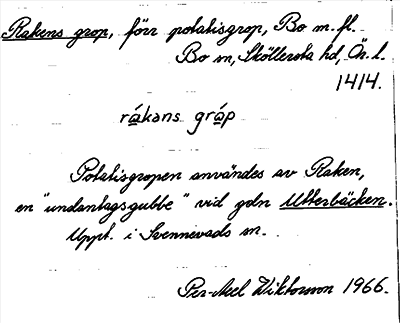 Rakens grop, förr potatisgrop, Bo m. fl.
Bo sn, Sköllersta hd, Ör. l.
1414.
rákəns gráp
Potatisgropen användes av Raken,
en "undantagsgubbe" vid gdn Utterbäcken.
Uppt. i Svennevads sn.
Per-Axel Wiktorsson 1966.